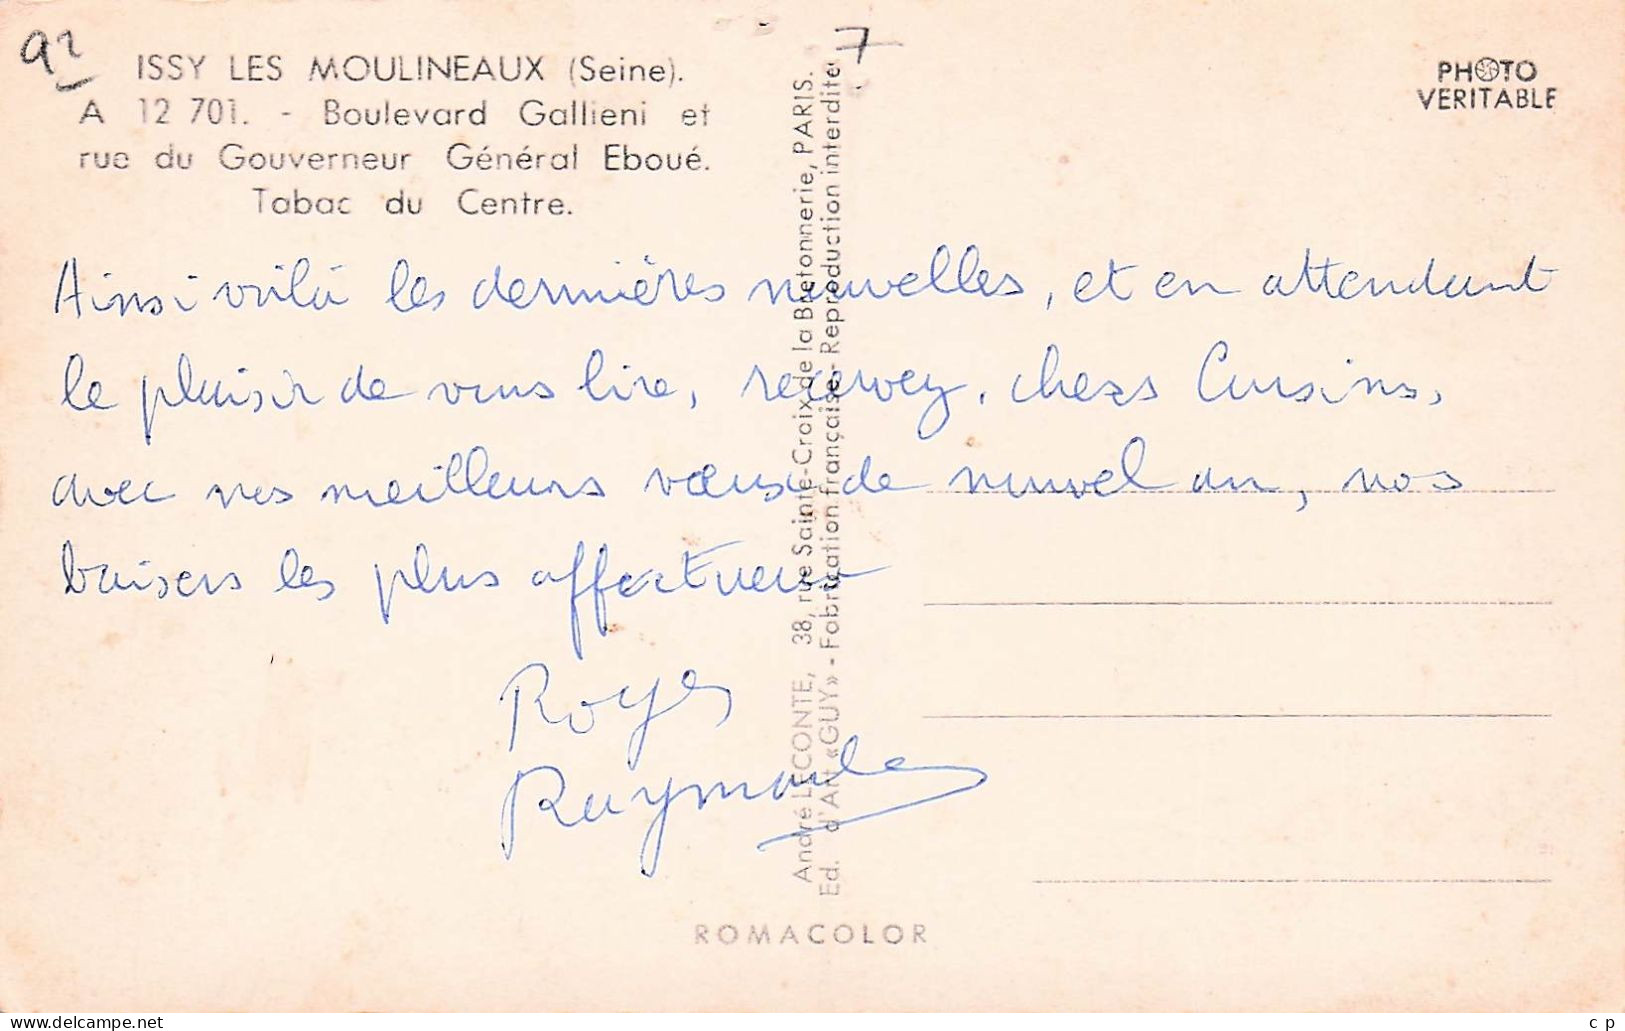 92
7
ISSY LES MOULINEAUX (Seine).
A 12 701. - Boulevard Gallieni et
rue du Gouverneur Général Eboué.
Tabac du Centre.
PHOTO
VERITABLE
Ainsi voilà les dernières nouvelles, et en attendant
le plaisir de vous lire, recevez, chers Cousins,
avec nos meilleurs vœux de nouvel an, nos
baisers les plus affectueux
Roger
Raymonde
André LECONTE, 38, rue Sainte-Croix de la Bretonnerie, PARIS.
Ed. d'Art «GUY» - Fabrication française - Reproduction interdite
ROMACOLOR
delcampe.net
c p